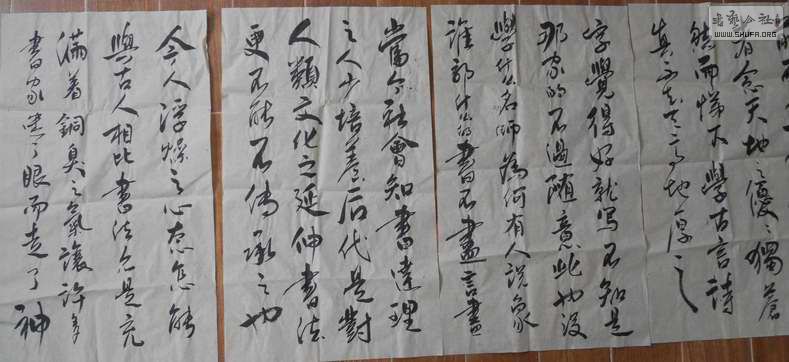 念天地之優々獨蒼
然而悌下學古言詩
真不知天高地厚之
字覺得好就寫不知是
那家的不過隨意此也沒
學什么名師為何有人說象
誰都什么的書不盡言書
當今社會知書達理
之人少培養后代是對
人類文化之延伸書法
更不能不傳承之也
今人浮燥之心态怎能
與古人相比書法是充
滿着銅臭之氣讓許多
書家眼而走了神
書藝公社
WWW.SHUFA.ORG